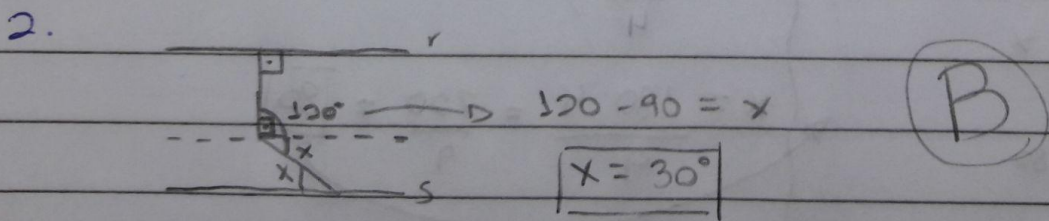 2.
r
120° → 120 - 90 = x
B
x
x
s
x = 30°